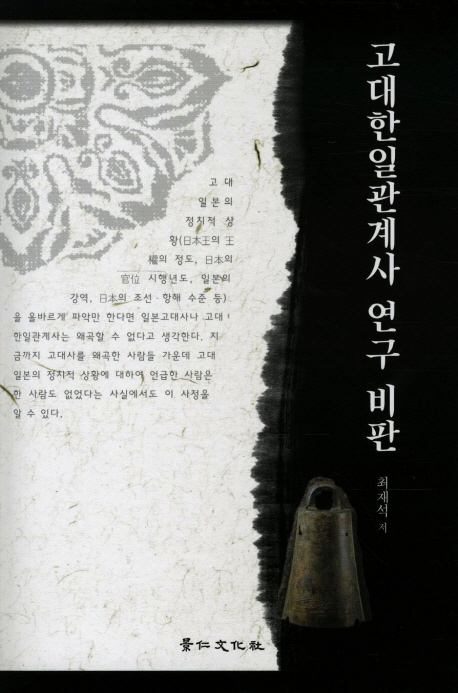 고대한일관계사 연구 비판
최재석 저
고 대
일본의
정치적 상
황(日本王의 王
權의 정도, 日本의
官位 시행년도, 일본의
강역, 日本의 조선·항해 수준 등)
을 올바르게 파악만 한다면 일본고대사나 고대
한일관계사는 왜곡할 수 없다고 생각한다. 지
금까지 고대사를 왜곡한 사람들 가운데 고대
일본의 정치적 상황에 대하여 언급한 사람은
한 사람도 없었다는 사실에서도 이 사정을
알 수 있다.
景仁文化社